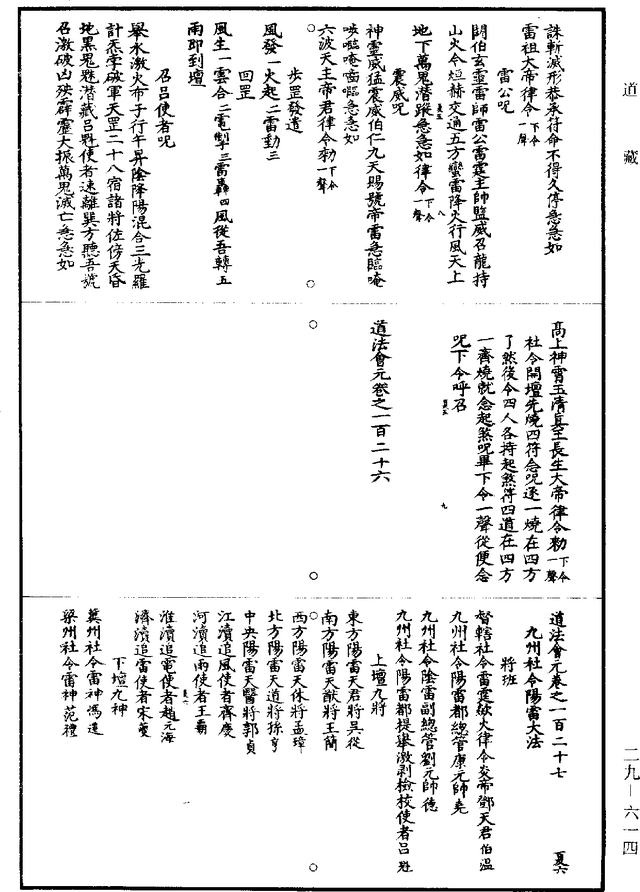 道藏
誅斬滅形恭承符命不得久停急急如
雷祖大帝律令下令一聲
雷公呪
閼伯玄靈雷師雷公雷霆主帥監威召龍持
山火令烜赫交通五方蠻雷降火行風天上
地下萬鬼潛蹤急急如律令下令一聲
震威呪
神靈威猛震威伯仁九天賜號帝雷急臨唵
六波天王帝君律令勑下令一聲
步罡發遣
風發一火起二雷動三
回罡
風生一雲合二電掣三雷轟四風從吾轉五
雨即到壇
召呂使者呪
梁水激火布于行午昇陰降陽混合三光羅
計炁孛破軍天罡二十八宿諸將佐傍天昏
地黑鬼魅潛藏呂魁使者速離巽方聽吾號
召激破凶殃霹靂大振萬鬼滅亡急急如
高上神霄玉清真王長生大帝律令勑下令一聲
社令開壇先燒四符念呪逐一燒在四方
了然後令四人各持起煞符四道在四方
一齊燒就念起煞呪畢下令一聲從便念
呪下令呼召
九
道法會元卷之一百二十六
道法會元卷之一百二十七
夏六
九州社令陽雷大法
將班
督轄社令雷霆欻火律令炎帝鄧天君伯溫
九州社令陽雷都總管康元帥堯
九州社令陰雷副總管劉元帥德
九州社令陽雷都提舉激剥檢校使者呂魁
上壇九將
東方陽雷天君將吳從
南方陽雷天猷將王簡
西方陽雷天休將孟璋
北方陽雷天道將孫亨
中央陽雷天醫將郭貞
江瀆追風使者齊慶
河瀆追雨使者王霸
淮瀆追電使者趙元海
濟瀆追雷使者宋夔
下壇九神
冀州社令雷神馮逵
梁州社令雷神范禮
二九—六一四